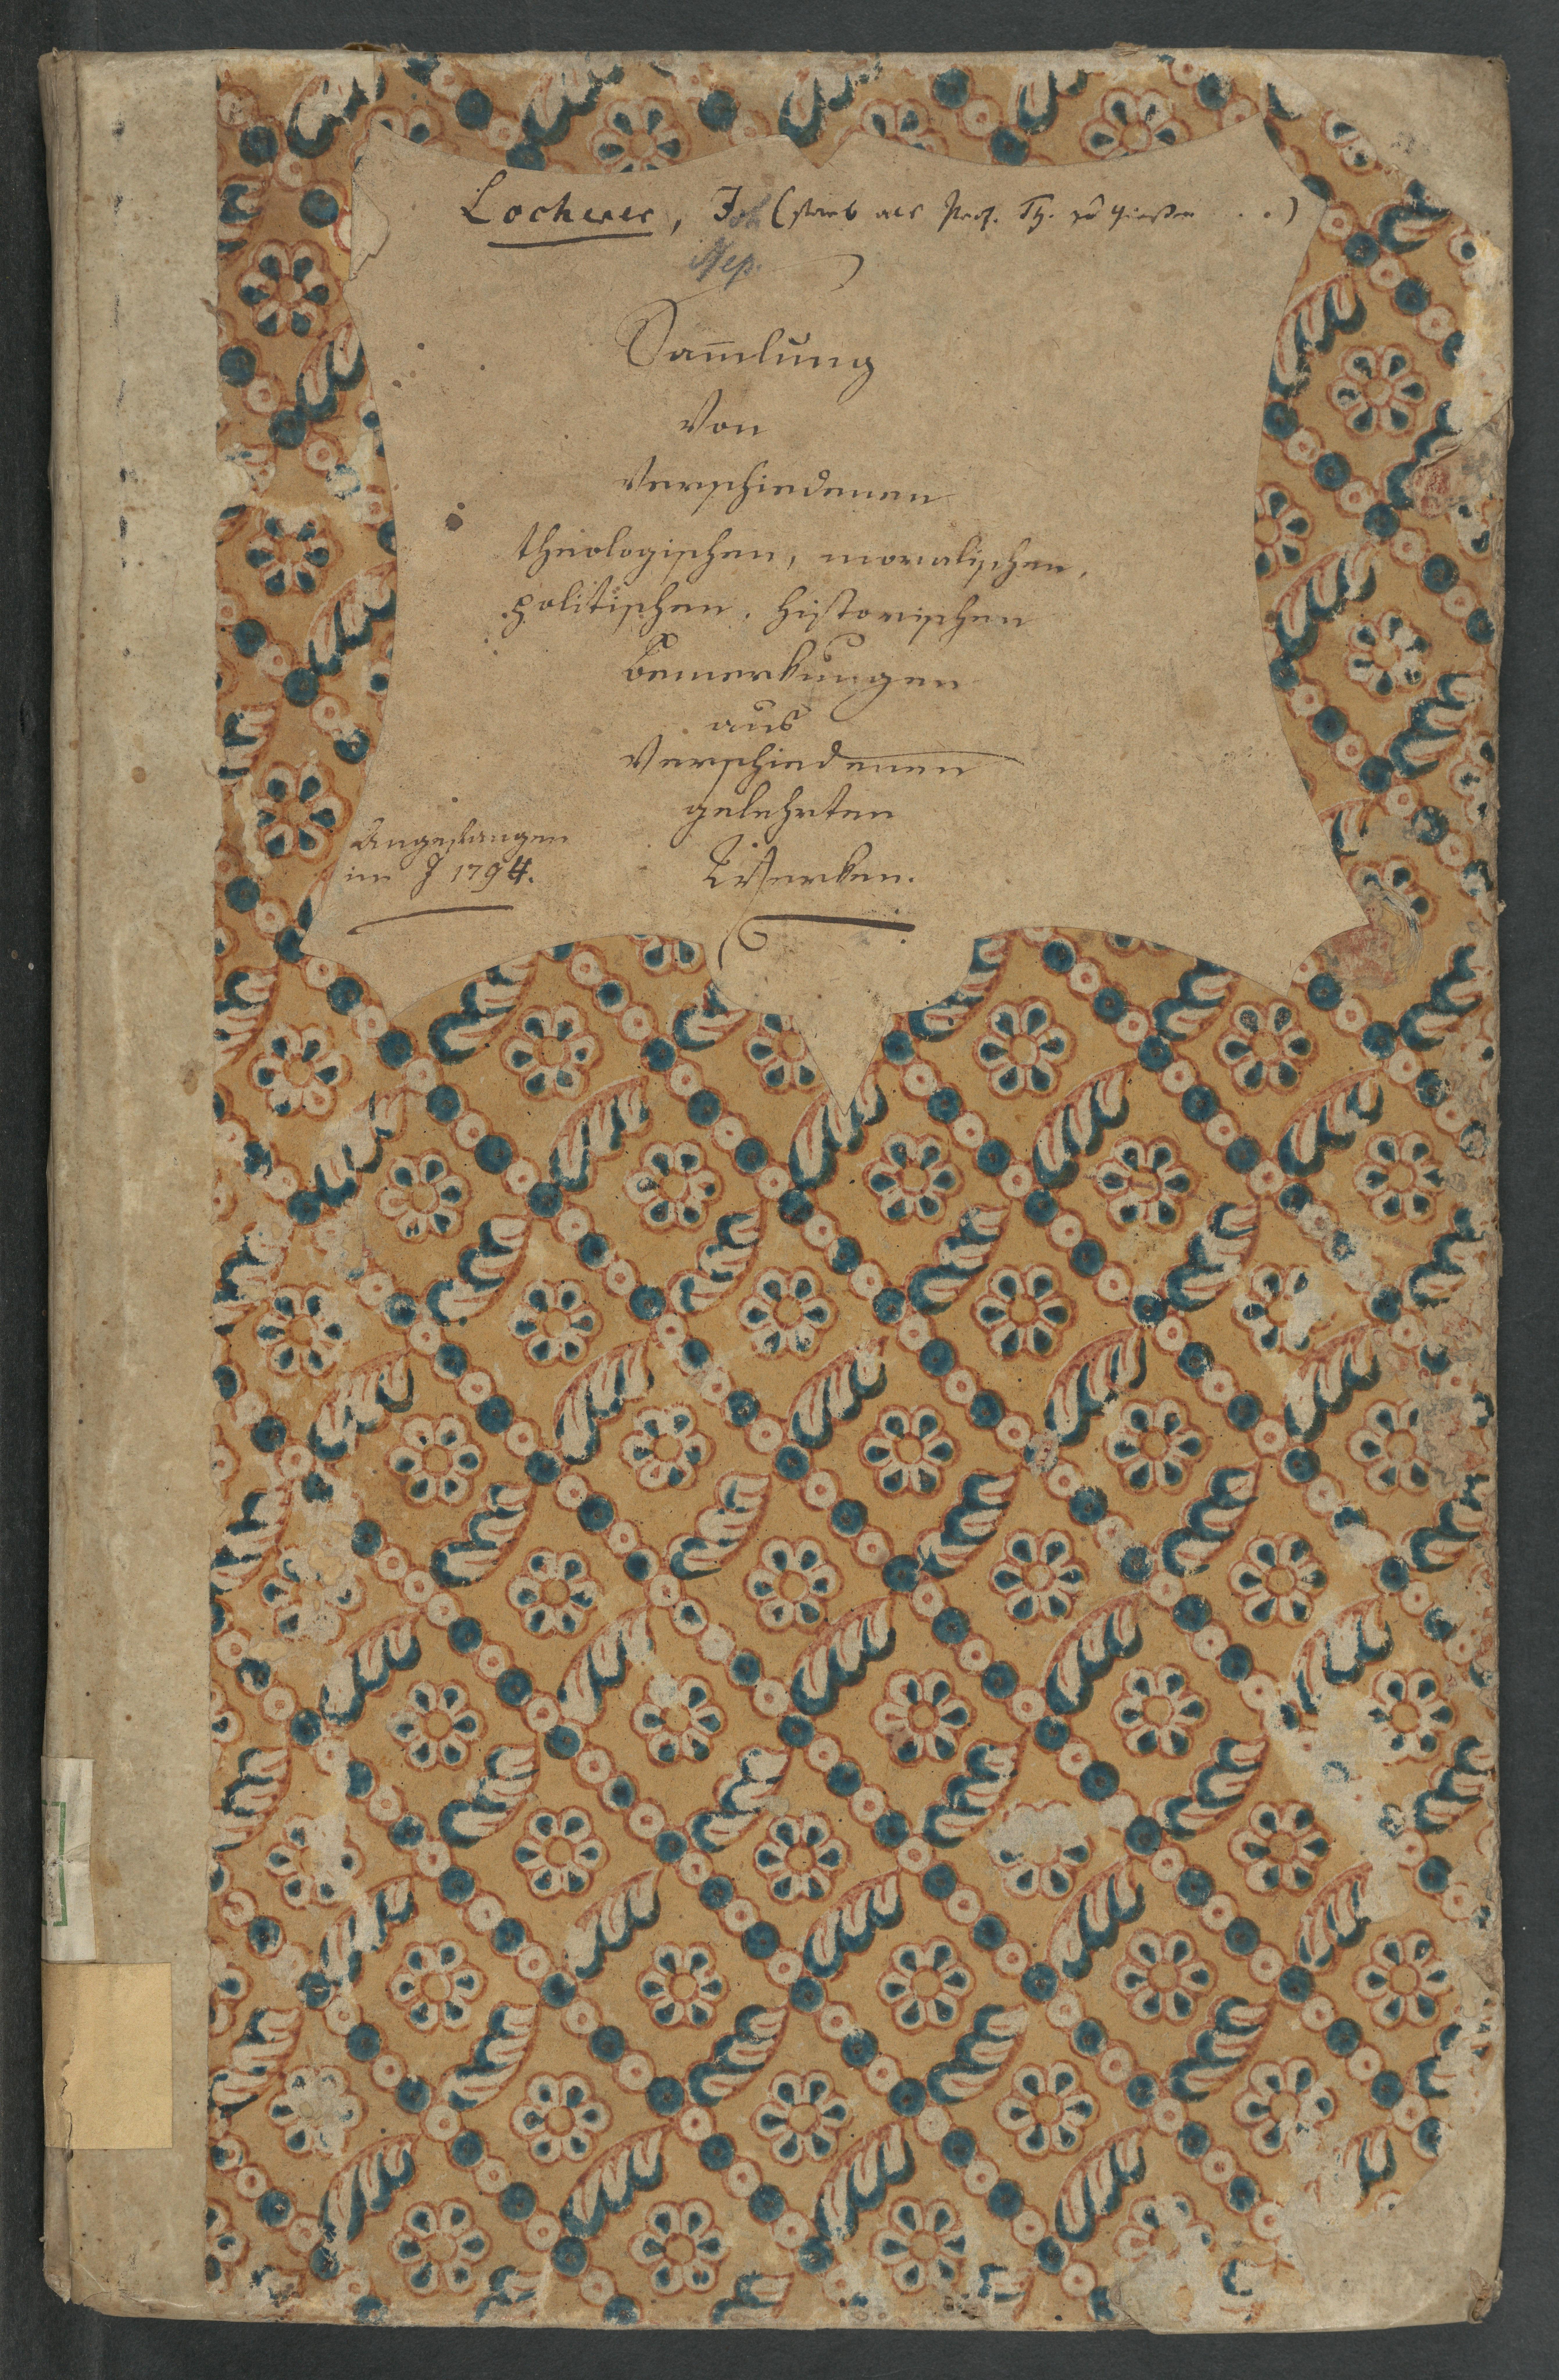 Locherer, Joh (starb als Prof. Th. zu Giessen . .)
Nep.
Sam̅lung
Von
Verschiedenen
theologischen, moralischen,
politischen, historischen
Bemerkungen
aus
Verschiedenen
gelehrten
Werken.
Angefangen
im J 1794.